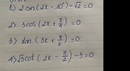 1) 2sin(2x - 10°) - √2 = 0
2) 3cos(2x + π/6) = 0
3) sin(3x + π/4) = 0
4) √3cot(2x - π/3) - 3 = 0